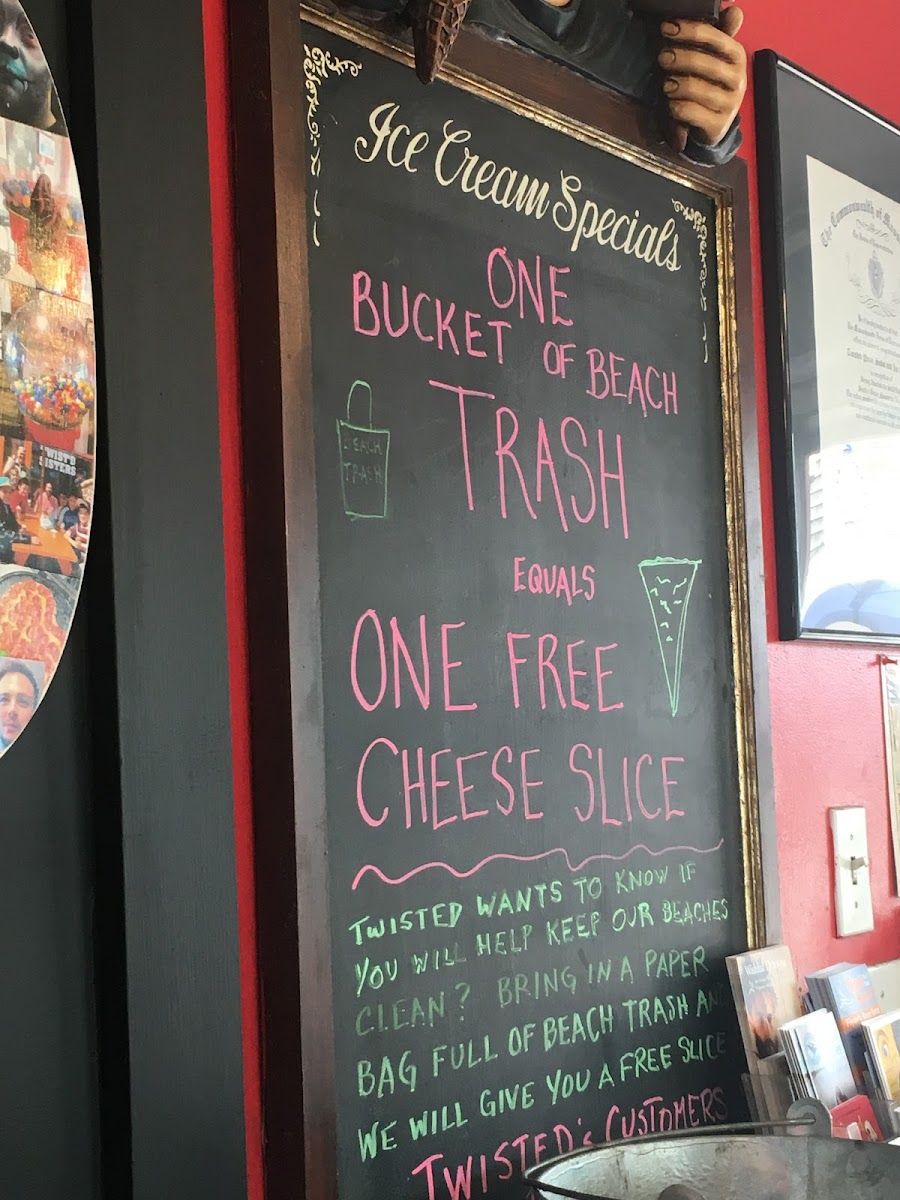 Ice Cream Specials
ONE
BUCKET OF BEACH
TRASH
BEACH
TRASH
EQUALS
ONE FREE
CHEESE SLICE
TWISTED WANTS TO KNOW IF
YOU WILL HELP KEEP OUR BEACHES
CLEAN? BRING IN A PAPER
BAG FULL OF BEACH TRASH AND
WE WILL GIVE YOU A FREE SLICE
TWISTED'S CUSTOMERS
TWIST'D
SISTERS
The Commonwealth of